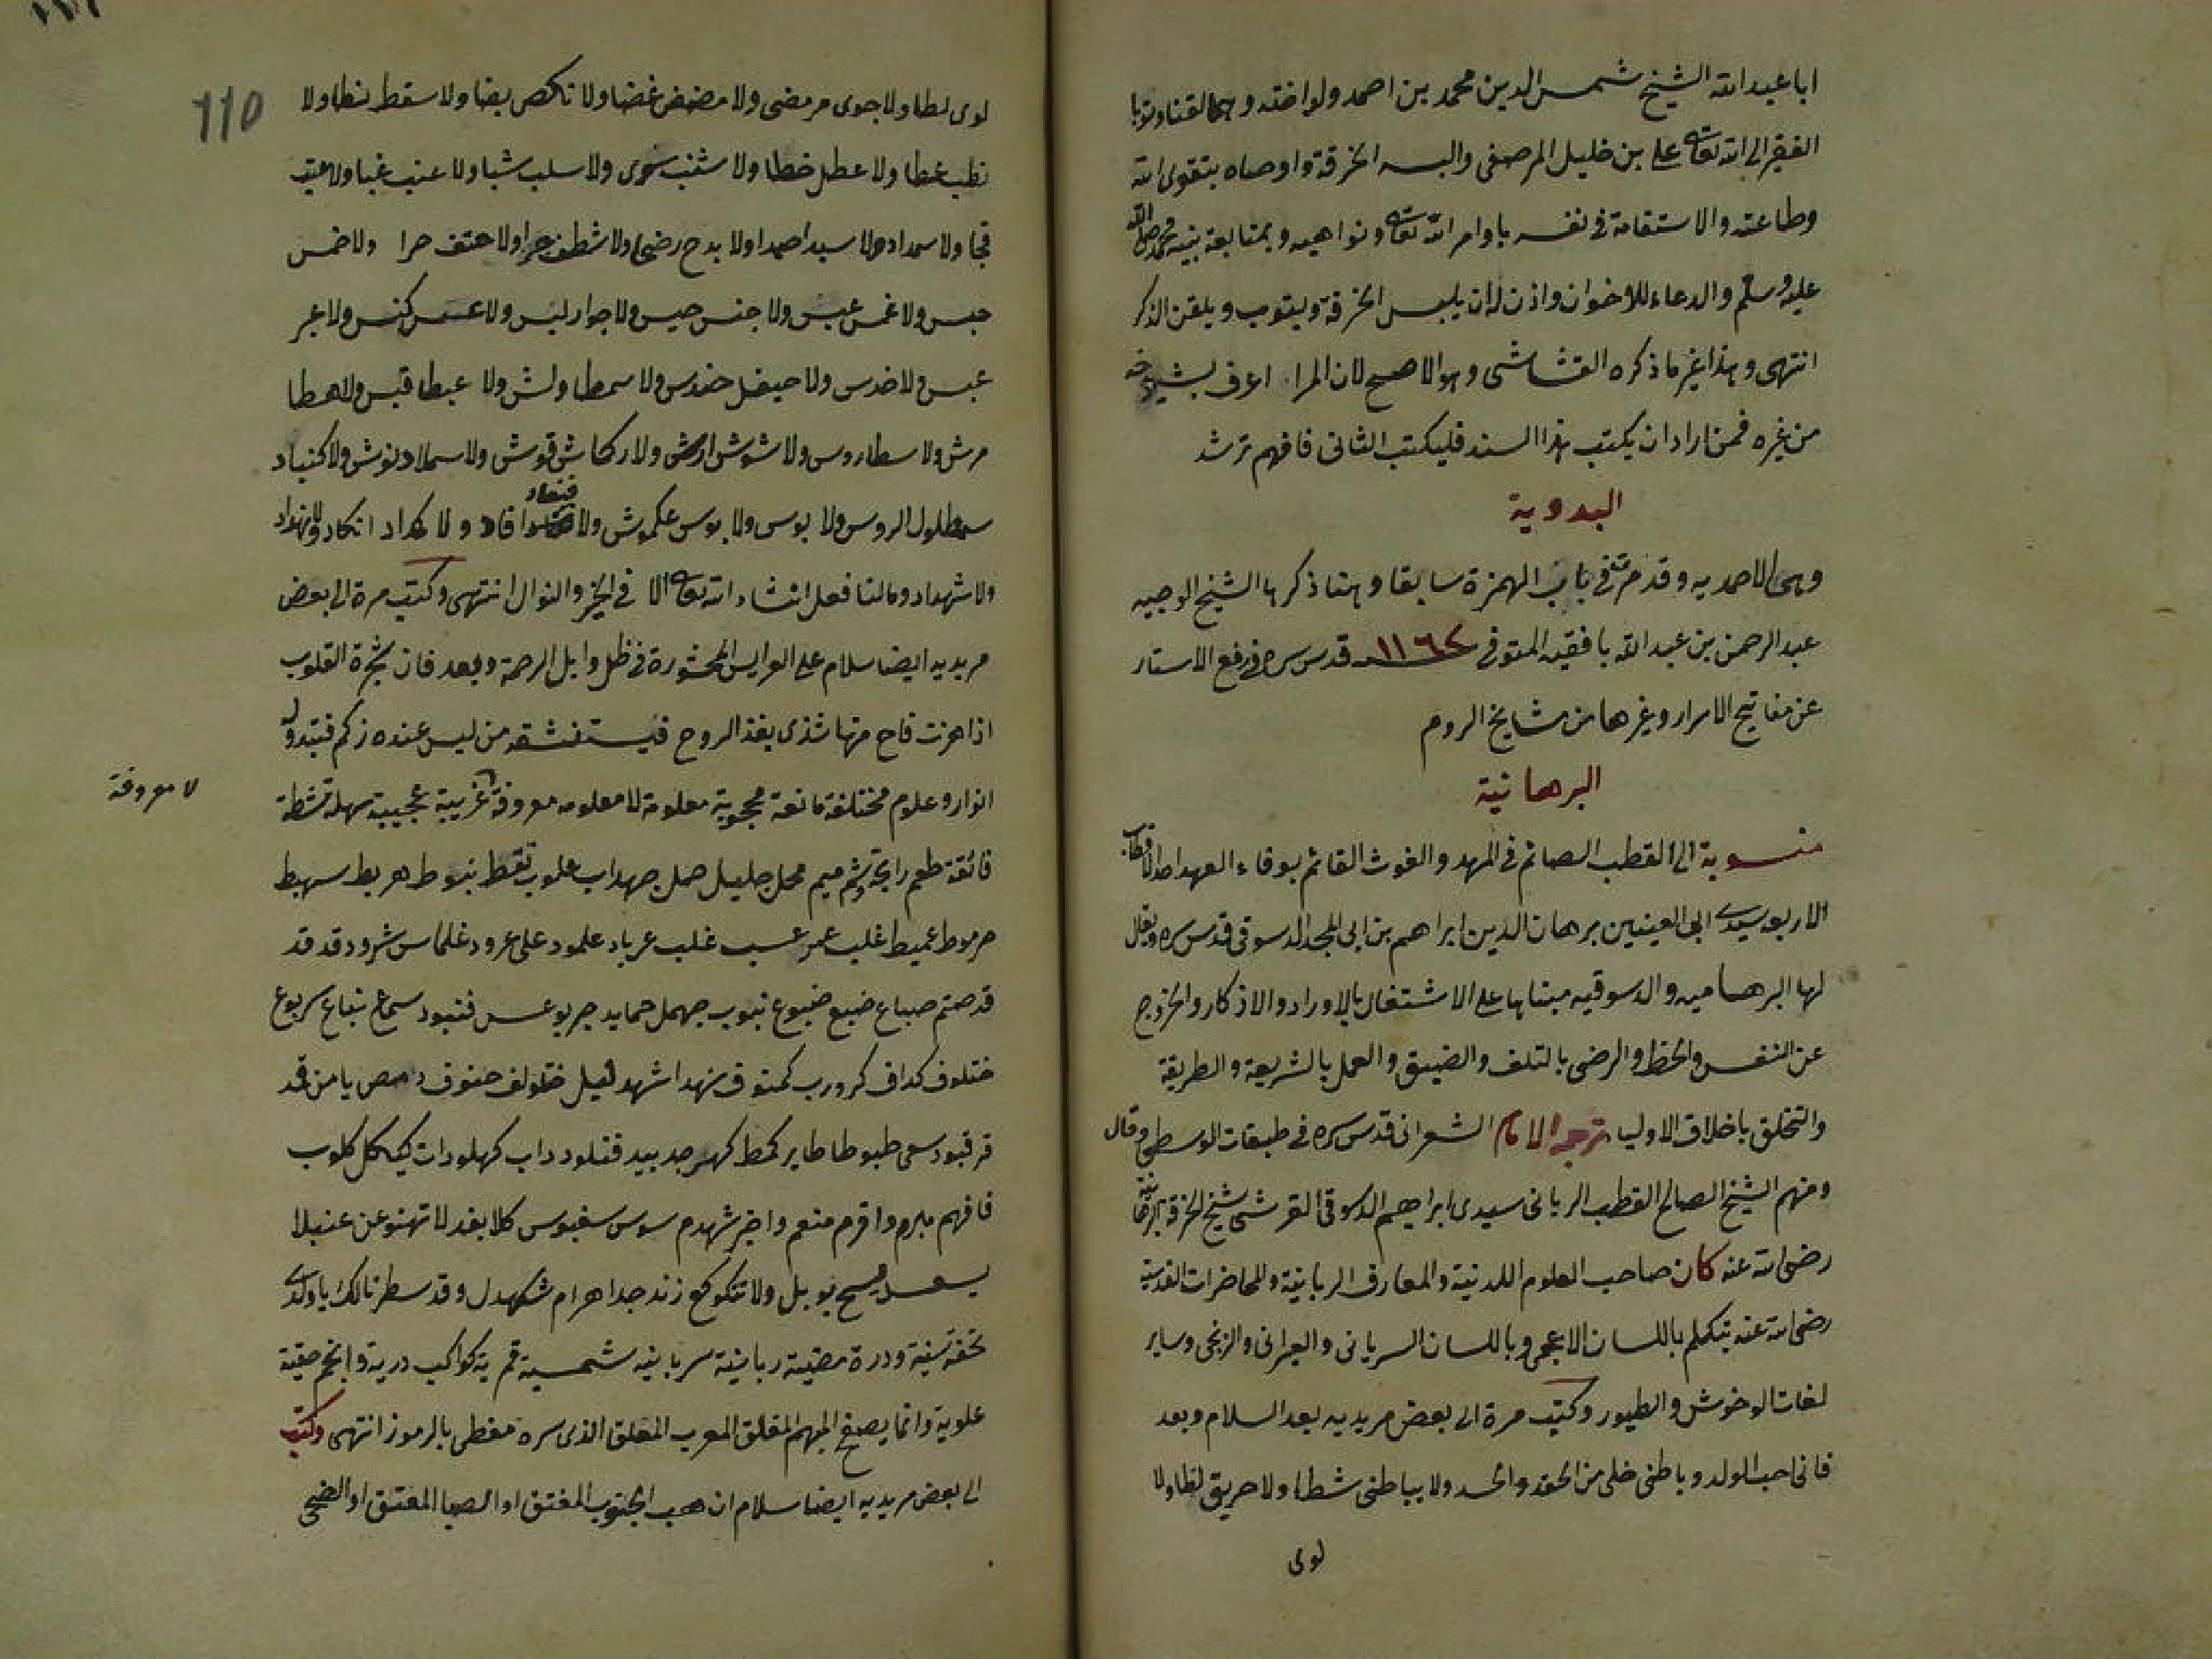 ابا عبد الله الشيخ شمس الدين محمد بن احمد ولواخته وهما لقنا وتوبا
الفقير الى الله تعالى علي بن خليل المرصفي والبسه الخرقة واوصاه بتقوى الله
وطاعته والاستقامة في نفسه باوامر الله تعالى ونواهيه وبمتابعة نبيه محمد صلى الله
عليه وسلم والدعاء للاخوان واذن له ان يلبس الخرقة ويتوب ويلقن الذكر
انتهى وهذا غير ما ذكره القشاشي وهو الاصح لان المرا اعرف بشيوخه
من غيره فمن اراد ان يكتب هذا السند فليكتب الثاني فافهم ترشد
البدوية
وهي الاحمديه وقد مرت في باب الهمزة سابقا وهنا ذكرها الشيخ الوجيه
عبد الرحمن بن عبد الله بافقيه المتوفى ١١٦٢ قدس سره في رفع الاستار
عن مفاتيح الاسرار وغيرها من مشايخ الروم
البرهانية
منسوبة الى القطب الصائم في المهد والغوث القائم بوفاء العهد احد الاقطاب
الاربعه سيدي ابي العينين برهان الدين ابراهيم بن ابي المجد الدسوقي قدس سره ويقال
لها البرهاميه والدسوقيه مبناها على الاشتغال بالاوراد والاذكار والخروج
عن النفس والحظ والرضى بالتلف والضيق والعمل بالشريعة والطريقة
والتخلق باخلاق الاوليا ترجمه الامام الشعراني قدس سره في طبقات الوسطى وقال
ومنهم الشيخ الصالح القطب الرباني سيدي ابراهيم الدسوقي القرشي شيخ الخرقة البرهانية
رضي الله عنه كان صاحب العلوم اللدنية والمعارف الربانية والمحاضرات القدسية
رضي الله عنه يتكلم باللسان الاعجمي وباللسان السرياني والعبراني والزنجي وساير
لغات الوحوش والطيور وكتب مرة الى بعض مريديه بعد السلام وبعد
فاني احب الولد وباطني خلي من الحقد والحسد ولا بباطني شظا ولا حريق لظا ولا
لوى
110
لوى لظا ولا جوى مر مضى ولا مضض غضا ولا نكص بضا ولا سقط نظا ولا
نطب غطا ولا عطل خطا ولا شنب سرى ولا سلب شبا ولا عتب
فجا ولا سمدا دها ولا بدح رضى ولا شطف جرا ولا حتف حرا ولا خمس
حبس ولا غمس عبس ولا جنس حيس ولا جوار ليس ولا عسعس كنس ولا
عبس ولا خدس ولا حيقل خندس ولا سمطا ولش ولا عيطا قبس ولا هطا
مرش ولا سطا روس ولا شوش ارش ولا ركاش قوش ولا سملاد نوش ولا كنباد
سمطلول الروس ولا بوس ولا بوس عكموش ولا قنفاد افاد ولا كداد انكاد ولا نهداد
ولا شهداد ومالنا فعل ان شاء الله تعالى الا في الخير والنوال انتهى وكتب مرة الى بعض
مريديه ايضا سلام على العرايس المحشورة في ظل وابل الرحمة وبعد فان شجرة القلوب
اذا هزت فاح منها شذى يغذ الروح فيستنشقه من ليس عنده زكم فتبدو له
انوار وعلوم مختلفة مانعة محجوبة معلومة لا معلومه معروفة غريبة عجيبة سهلة شطة
لا معروفة
فائقة طعم رايحة وشم ميم محل جليل جهداب علوب نقط نبوط هربط سهبط
حرموط عميط غلب عمر عسب غلب عرباد علمود على عرود غلماس شرود قد قد
قد صتم صباع ضبع ضبوع نبوب جهمل حمايد جربوعس قنبود سماع نباع سربوع
ختلوف كداف كروب كمنوف نهدا شهد ختلولف حنوف رصص يا من قد
قر قبود سمى طبوطا طاير كمط كهر جد بيد قنلود داب كهلودات كيكل كلوب
فافهم مبرم واقرم منعم واخبر شهدم سوس سفبوس كلا بفد لا تهنوعن عنبلا
يسعد ميح بوبل ولا تتكوكع زند جدا هرام شكهدل وقد سطرنا لك يا ولدي
تحفة سنية ودرة مضيئة ربانية سريانيه شمسية قمرية كواكب درية وانجم صقية
علوية وانما يصفح المبهم المغلق المعرب المغلق الذي سره مغطى بالرموز انتهى وكتب
الى بعض مريديه ايضا سلام ان هب الجنوب المفتق او الصبا المعتق او الضحى